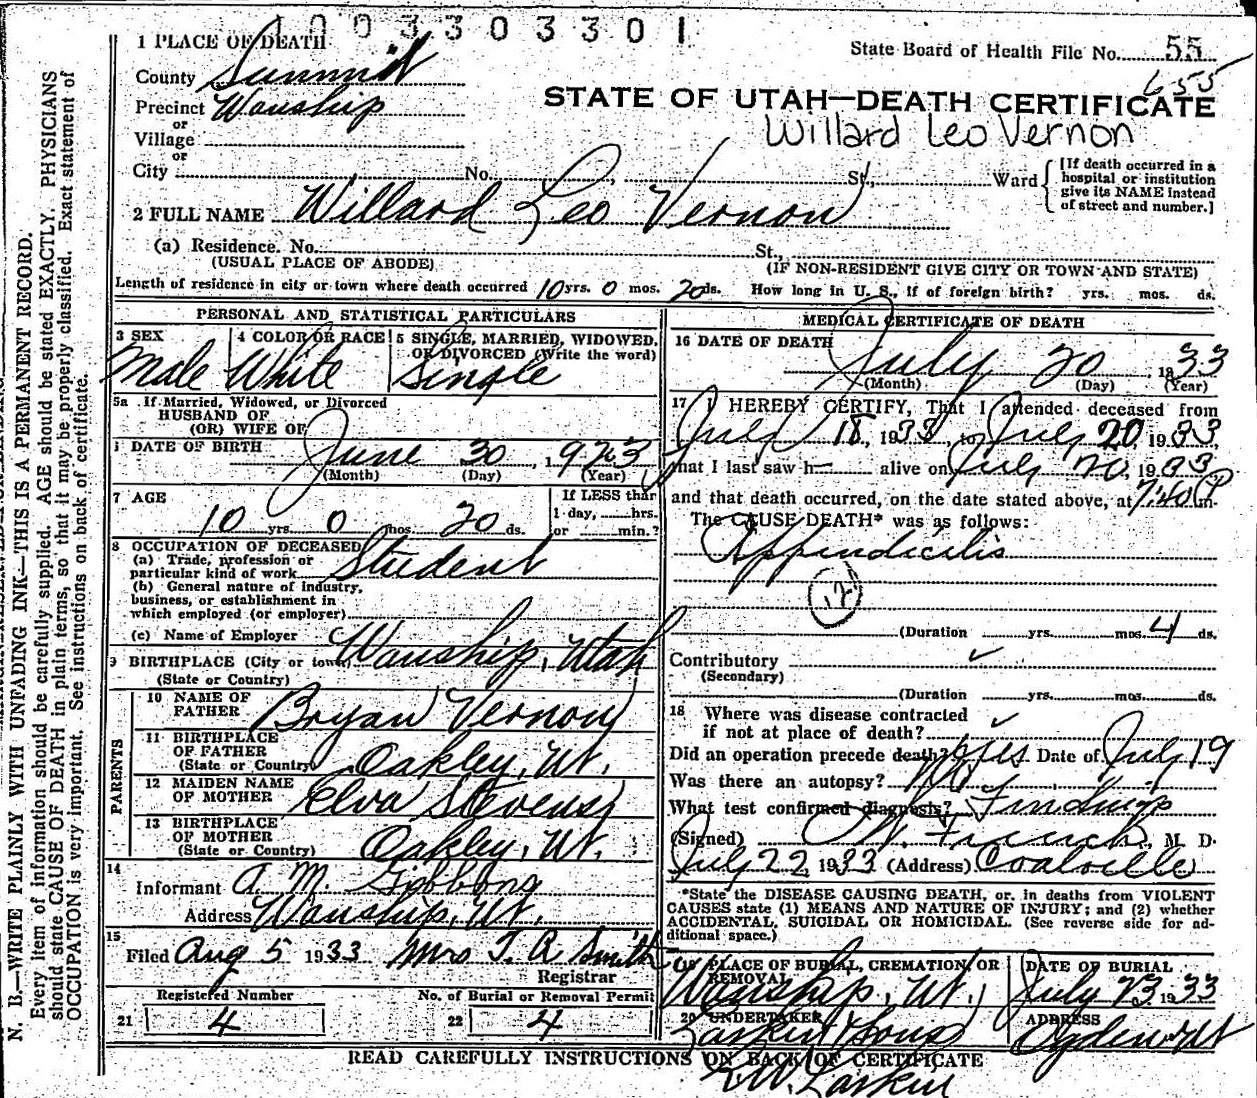 1003303301
1 PLACE OF DEATH
State Board of Health File No. 55
655
County Summit
Precinct Wanship
or
Village
or
City No. St., Ward
STATE OF UTAH—DEATH CERTIFICATE
Willard Leo Vernon
[If death occurred in a
hospital or institution
give its NAME instead
of street and number.]
2 FULL NAME Willard Leo Vernon
(a) Residence. No. St.,
(USUAL PLACE OF ABODE) (IF NON-RESIDENT GIVE CITY OR TOWN AND STATE)
Length of residence in city or town where death occurred 10 yrs. 0 mos. 20 ds. How long in U. S., if of foreign birth? yrs. mos. ds.
PERSONAL AND STATISTICAL PARTICULARS
3 SEX 4 COLOR OR RACE 5 SINGLE, MARRIED, WIDOWED,
OR DIVORCED (Write the word)
Male White Single
5a If Married, Widowed, or Divorced
HUSBAND OF
(OR) WIFE OF
DATE OF BIRTH June 30, 1923
(Month) (Day) (Year)
7 AGE
If LESS than
1 day, hrs.
or min.?
10 yrs. 0 mos. 20 ds.
8 OCCUPATION OF DECEASED
(a) Trade, profession or
particular kind of work Student
(b) General nature of industry,
business, or establishment in
which employed (or employer)
(c) Name of Employer
9 BIRTHPLACE (City or town) Wanship, Utah
(State or Country)
PARENTS
10 NAME OF
FATHER Bryan Vernon
11 BIRTHPLACE
OF FATHER
(State or Country) Oakley, Ut.
12 MAIDEN NAME
OF MOTHER Elva Stevens
13 BIRTHPLACE
OF MOTHER
(State or Country) Oakley, Ut.
14
Informant A. M. Gibbons
Address Wanship, Ut.
15
Filed Aug 5 1933 Mrs T. R Smith
Registrar
Registered Number No. of Burial or Removal Permit
21 4 22 4
MEDICAL CERTIFICATE OF DEATH
16 DATE OF DEATH
July 20 33
(Month) (Day) (Year)
17 I HEREBY CERTIFY, That I attended deceased from
July 18, 1933, to July 20 1933,
that I last saw h alive on July 20, 1933
and that death occurred, on the date stated above, at 7:40 P m.
The CAUSE DEATH* was as follows:
Appendicitis
(Duration yrs. mos. 4 ds.
Contributory
(Secondary)
(Duration yrs. mos. ds.
18 Where was disease contracted
if not at place of death?
Did an operation precede death? yes Date of July 19
Was there an autopsy? No
What test confirmed diagnosis? Findings
(Signed) French, M. D.
July 22, 1933 (Address) Coalville
*State the DISEASE CAUSING DEATH, or, in deaths from VIOLENT
CAUSES state (1) MEANS AND NATURE OF INJURY; and (2) whether
ACCIDENTAL, SUICIDAL OR HOMICIDAL. (See reverse side for ad-
ditional space.)
19 PLACE OF BURIAL, CREMATION, OR
REMOVAL
DATE OF BURIAL
Wanship, Ut. July 23, 1933
20 UNDERTAKER ADDRESS
Larkin & Sons Ogden Ut
READ CAREFULLY INSTRUCTIONS ON BACK OF CERTIFICATE
Larkin
N. B.—WRITE PLAINLY WITH UNFADING INK—THIS IS A PERMANENT RECORD.
Every item of information should be carefully supplied. AGE should be stated EXACTLY. PHYSICIANS
should state CAUSE OF DEATH in plain terms, so that it may be properly classified. Exact statement of
OCCUPATION is very important. See instructions on back of certificate.